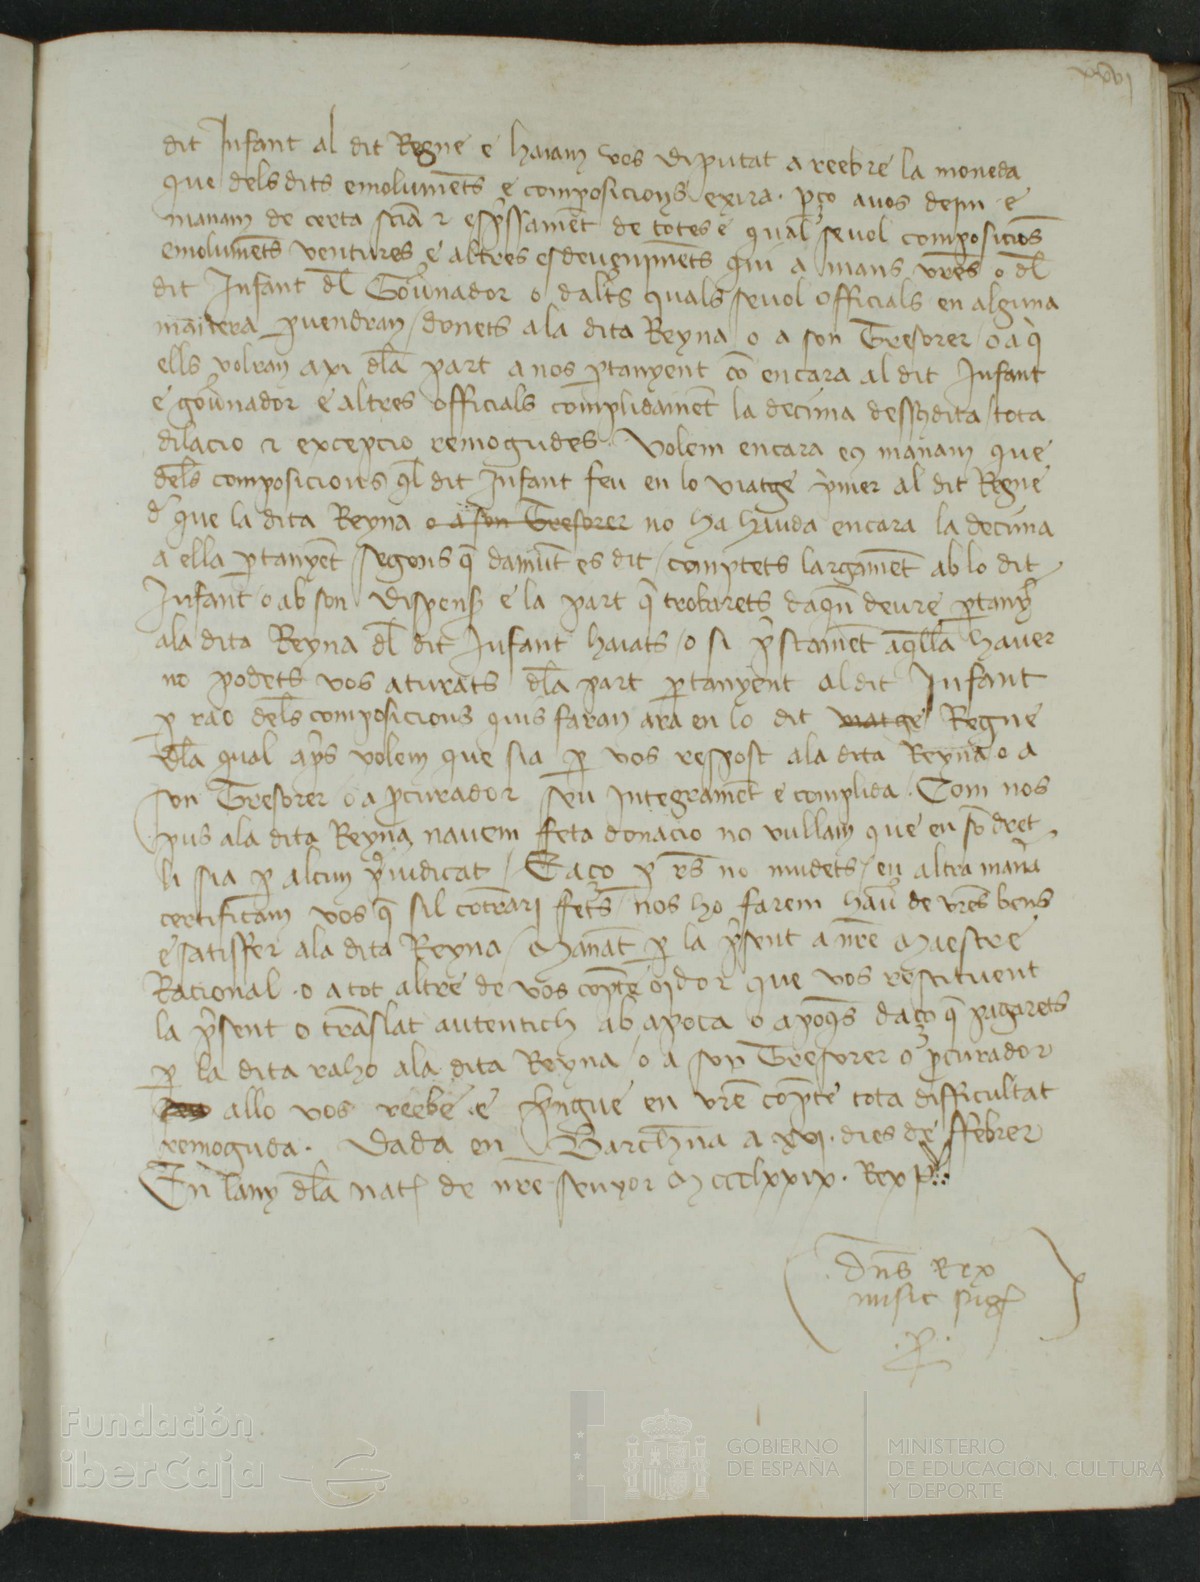 xxvi
dit Infant al dit Regne e haiam vos diputat a reebre la moneda
que dels dits emolumēts e composicions exira. ꝑço a vos deim e
manam de certa sciā ⁊ esp̄ssamēt de totes e qualsseuol composiciōs
emolumēts ventures e altres esdeuenimēts qui a mans vr̄es o dl̄
dit Infant dl̄ Gou̓nador o daltr̄s quals seuol officials en alguna
manera ꝑuendran / donets a la dita Reyna o a son Tresorer / o a q̄
ells volran axi dl̄a part a nos ꝑtanyent cō encara al dit Infant
e gou̓nador e altres officials complidamēt la decima dessusdita / tota
dilacio ⁊ excepcio remogudes. Volem encara eus manam que
dels composicions ql̄ dit Infant feu en lo viatge p̄mer al dit Regne
d̓ que la dita Reyna o a son Tresorer no ha hauda encara la decima
a ella ꝑtanyēt / segons q̄ damūt es dit / comptets largamēt ab lo dit
Infant / o ab son dispens̄ e la part q̄ trobarets daq̄n deure ꝑtany̓
a la dita Reyna dl̄ dit Infant haiats / o si p̄stamēt aq̄lla hauer
no podets vos aturats dl̄a part ꝑtanyent al dit Infant
ꝑ rao dels composicions quis faran ara en lo dit viatge Regne
dl̄a qual ap̄s volem que sia ꝑ vos respost a la dita Reyna o a
son Tresorer o a ꝓcurador seu integramēt e complida. Com nos
pus a la dita Reyna hauem feta donacio no vullam que en sō dret
li sia ꝑ alcun p̄iudicat / E aço ꝑ rēs no mudets / en altra manā
certificam vos q̄ sil cōtrari fets̄ / nos ho farem hau̓ de vr̄es bens
e satisfer a la dita Reyna / Manāt ꝑ la p̄sent a nr̄e Maestre
Racional . o a tot altre de vos cōpte oydor que vos restituent
la p̄sent o trāslat autentich ab apoca o apoq̄s daço q̄ pagarets
ꝑ la dita raho a la dita Reyna / o a son Tresorer o ꝓcurador
seu allo vos reebe . e p̄ngue en vr̄e cōpte tota difficultat
remoguda. Dada en Barchn̄a a xvi. dies de ffebrer
En lany dl̄a nat̄ de nr̄e senyor Mccclxxix. Rex P.
Dn̄s Rex
misit siḡ
.P.
Fundación
iberCaja
GOBIERNO
DE ESPAÑA
MINISTERIO
DE EDUCACIÓN, CULTURA
Y DEPORTE